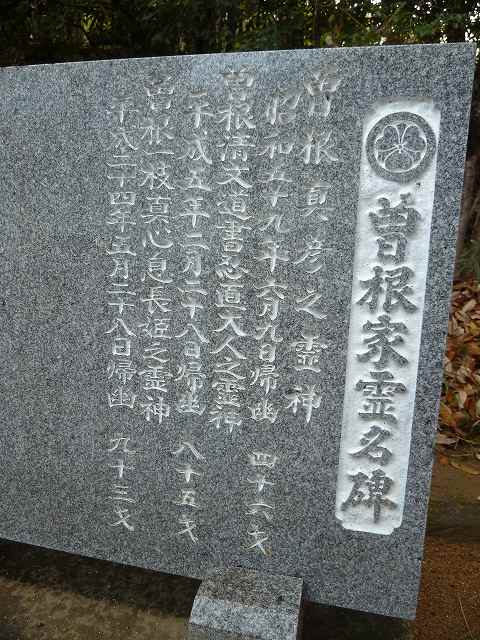 曽根家霊名碑
曽根真彦之霊神
昭和五十九年六月九日帰幽 四十六才
曽根清文道書志道大人之霊神
平成五年二月二十八日帰幽 八十五才
曽根一枝真心息長姫之霊神
平成二十四年五月二十八日帰幽 九十三才